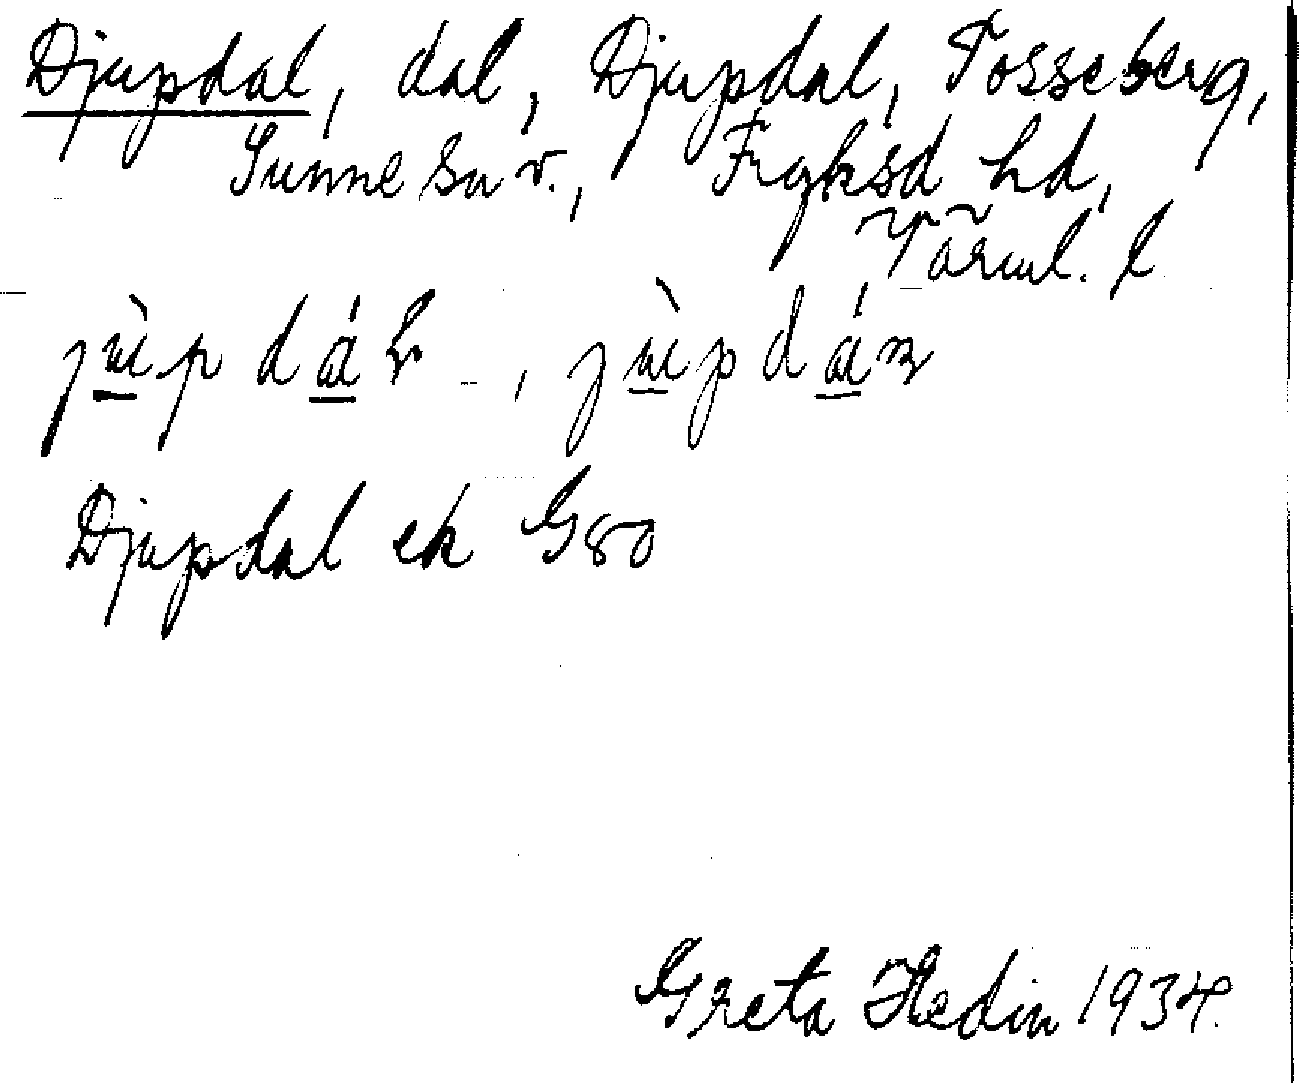 Djupdal, dal, Djupdal, Tosseberg,
Sunne sn v., Fryksd hd,
Värml. l
jùpdáɫ, jùpdán
Djupdal ek G80
Greta Hedin 1934.